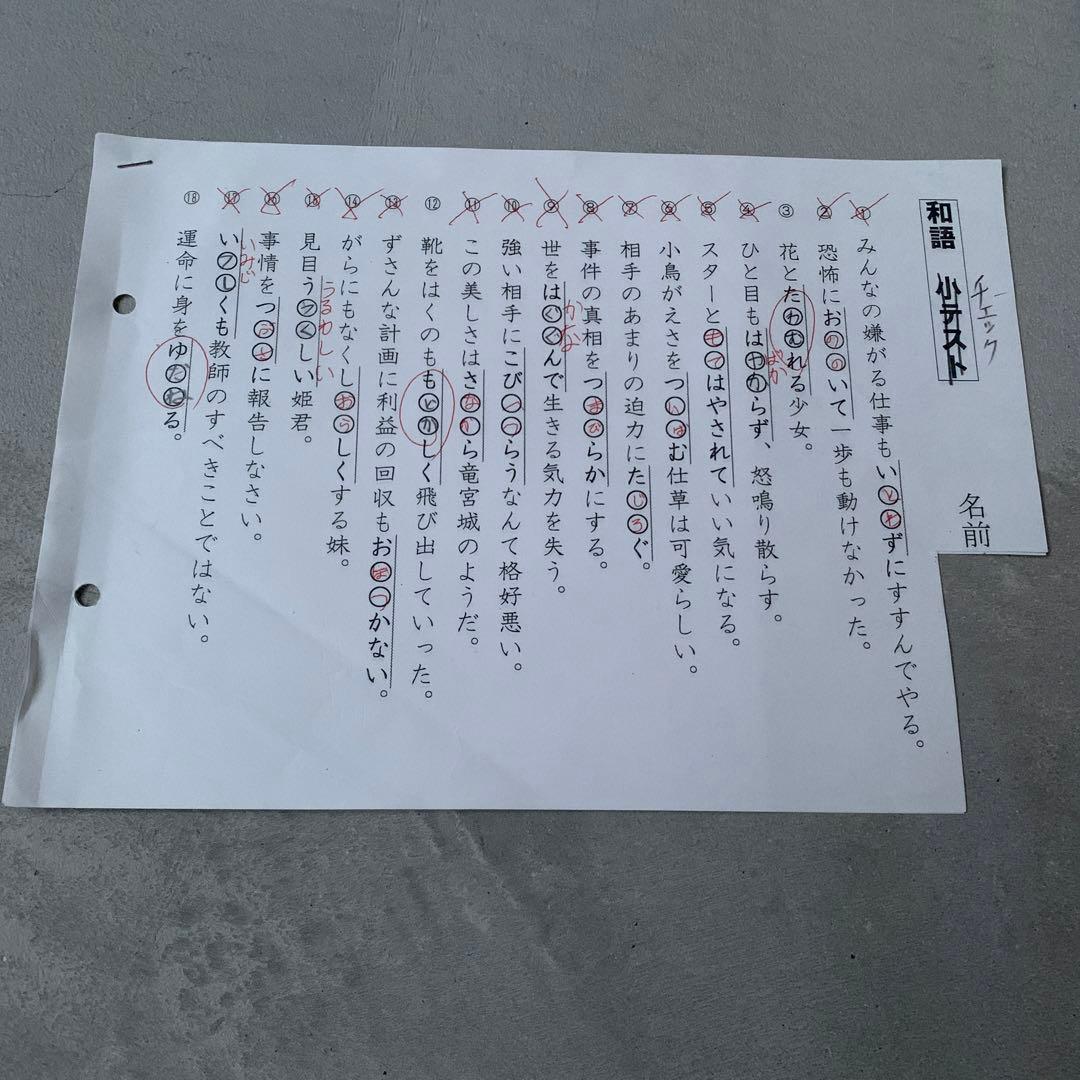 チェック
和語 小テスト
名前
① みんなの嫌がる仕事もいとわずにすすんでやる。
② 恐怖におののいて一歩も動けなかった。
③ 花とたわむれる少女。
④ ひと目もはやからず、怒鳴り散らす。
ばか
⑤ スターともてはやされていい気になる。
⑥ 小鳥がえさをついばむ仕草は可愛らしい。
⑦ 相手のあまりの迫力にたじろぐ。
⑧ 事件の真相をつまびらかにする。
⑨ 世をはくくんで生きる気力を失う。
かな
⑩ 強い相手にこびへつらうなんて格好悪い。
⑪ この美しさはさながら竜宮城のようだ。
⑫ 靴をはくのももどかしく飛び出していった。
⑬ ずさんな計画に利益の回収もおぼつかない。
⑭ がらにもなくしおらしくする妹。
⑮ 見目うつくしい姫君。
うるわしい
⑯ 事情をつぶさに報告しなさい。
⑰ いフしくも教師のすべきことではない。
いみじ
⑱ 運命に身をゆだねる。